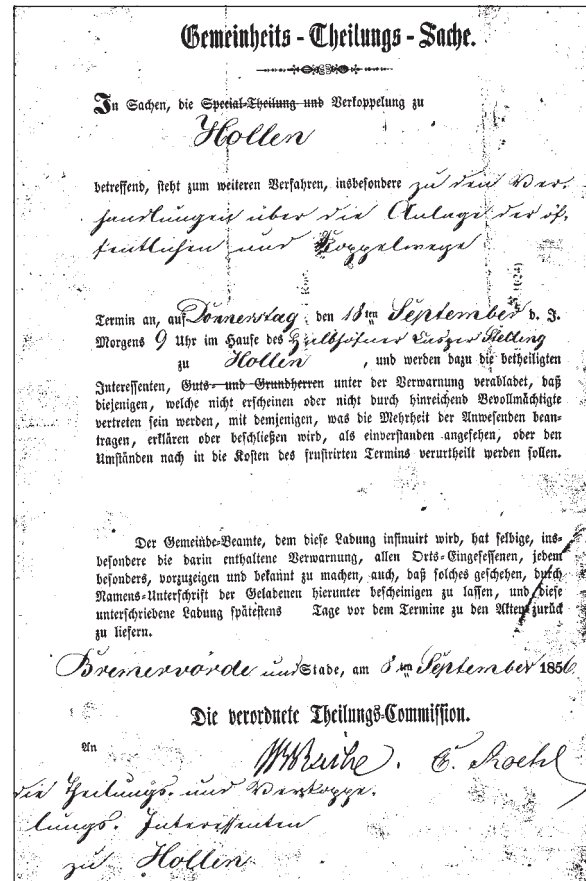 Gemeinheits-Theilungs-Sache.
In Sachen, die Special-Theilung und Verkoppelung zu
Hollen
betreffend, steht zum weiteren Verfahren, insbesondere zu den Ver-
handlungen über die Anlage der öf-
fentlichen und Koppelwege
Termin an, auf Donnerstag, den 18ten September d. J.
Morgens 9 Uhr im Hause des Halbhöfner Stelling
zu Hollen, und werden dazu die betheiligten
Interessenten, Guts- und Grundherren unter der Verwarnung verabladet, daß
diejenigen, welche nicht erscheinen oder nicht durch hinreichend Bevollmächtigte
vertreten sein werden, mit demjenigen, was die Mehrheit der Anwesenden bean-
tragen, erklären oder beschließen wird, als einverstanden angesehen, oder den
Umständen nach in die Kosten des frustrirten Termins verurtheilt werden sollen.
Der Gemeinde-Beamte, dem diese Ladung insinuirt wird, hat selbige, ins-
besondere die darin enthaltene Verwarnung, allen Orts-Eingesessenen, jedem
besonders, vorzuzeigen und bekannt zu machen, auch, daß solches geschehen, durch
Namens-Unterschrift der Geladenen hierunter bescheinigen zu lassen, und diese
unterschriebene Ladung spätestens Tage vor dem Termine zu den Akten zurück
zu liefern.
Bremervörde und Stade, am 8ten September 1856
Die verordnete Theilungs-Commission.
An
die Theilungs- und Verkoppe-
lungs-Interessenten
zu Hollen